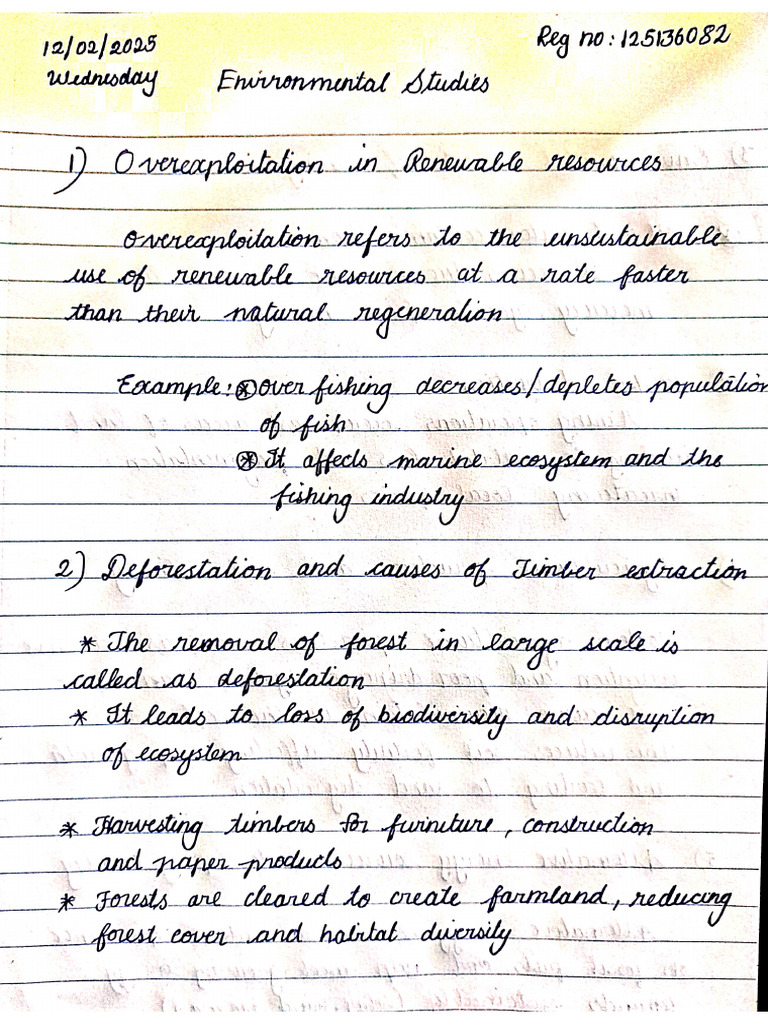 12/02/2025
Reg no: 125136082
Wednesday
Environmental Studies
1) Overexploitation in Renewable resources
Overexploitation refers to the unsustainable
use of renewable resources at a rate faster
than their natural regeneration
Example: * Over fishing decreases/depletes population
of fish
* It affects marine ecosystem and the
fishing industry
2) Deforestation and causes of Timber extraction
* The removal of forest in large scale is
called as deforestation
* It leads to loss of biodiversity and disruption
of ecosystem
* Harvesting timbers for furniture, construction
and paper products
* Forests are cleared to create farmland, reducing
forest cover and habitat diversity